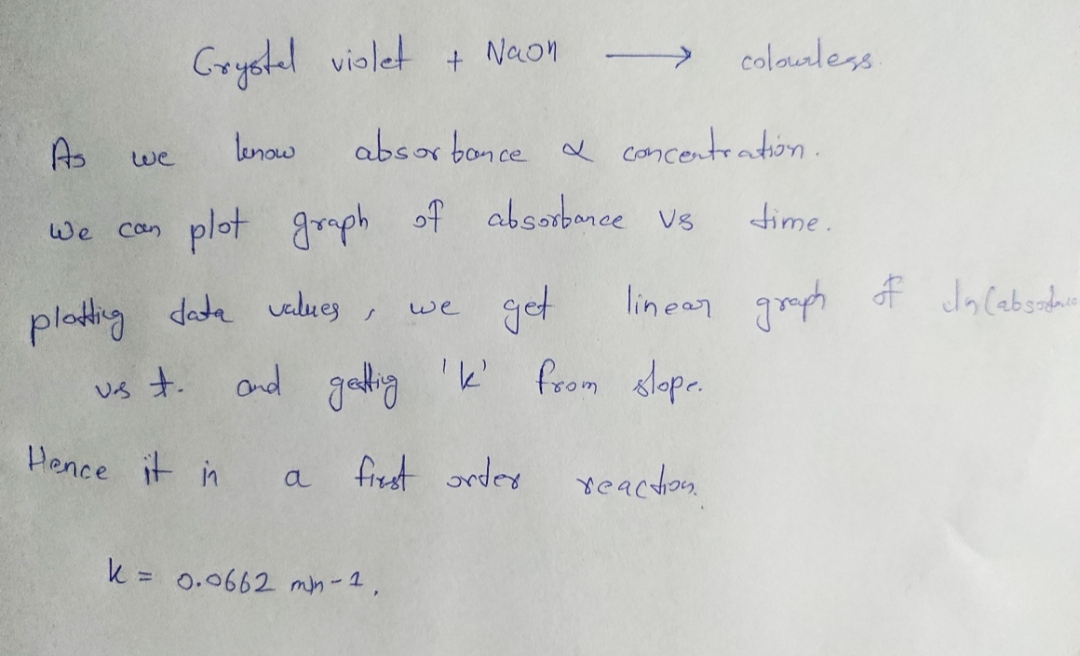 Crystal violet + NaOH ⟶ colourless.
As we know absorbance ∝ concentration.
We can plot graph of absorbance vs time.
plotting data values, we get linear graph of ln(absorbance
vs t. and getting 'k' from slope.
Hence it is a first order reaction.
k = 0.0662 min-1.